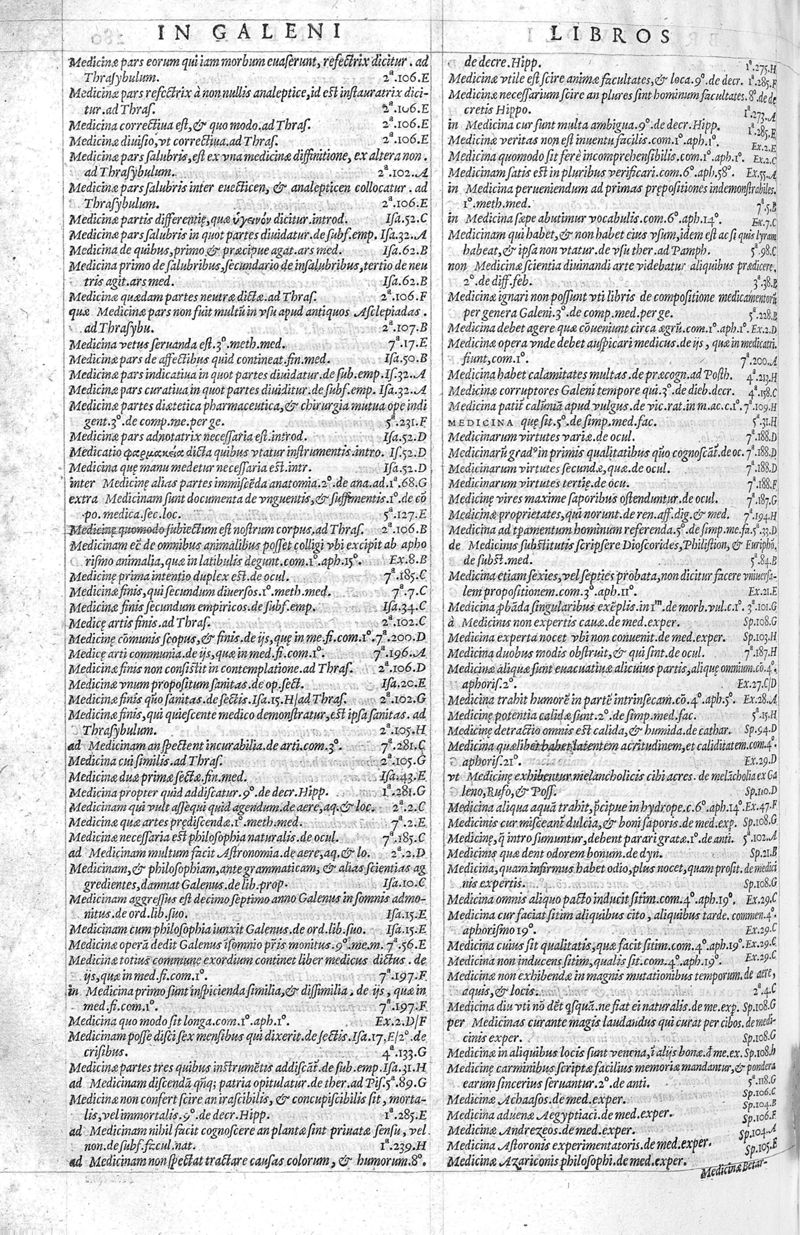 IN GALENI
Medicinæ pars eorum qui iam morbum euaserunt, refectrix dicitur. ad
Thrasybulum. 2ª.106.E
Medicinæ pars refectrix à non nullis analeptice, id est instauratrix dici-
tur. ad Thras. 2ª.106.E
Medicina correctiua est, & quo modo. ad Thras. 2ª.106.E
Medicinæ diuisio, vt correctiua. ad Thras. 2ª.106.E
Medicinæ pars salubris, est ex vna medicinæ diffinitione, ex altera non.
ad Thrasybulum. 2ª.102.A
Medicinæ pars salubris inter euecticen, & analepticen collocatur. ad
Thrasybulum. 2ª.106.E
Medicinæ partis differentię, quæ ὑγιεινόν dicitur. introd. Isa.52.C
Medicinæ pars salubris in quot partes diuidatur. de subf. emp. Isa.32.A
Medicina de quibus, primo & præcipue agat. ars med. Isa.62.B
Medicina primo de salubribus, secundario de insalubribus, tertio de neu
tris agit. ars med. Isa.62.B
Medicinæ quædam partes neutræ dictæ. ad Thras. 2ª.106.F
quæ Medicinæ pars non fuit multũ in vsu apud antiquos Asclepiadas.
ad Thrasybu. 2ª.107.B
Medicina vetus seruanda est. 3º. meth. med. 7ª.17.E
Medicinæ pars de affectibus quid contineat. fin. med. Isa.50.B
Medicinæ pars indicatiua in quot partes diuidatur. de sub. emp. Is.32.A
Medicinæ pars curatiua in quot partes diuiditur. de subf. emp. Is.32.A
Medicinæ partes diætetica pharmaceutica, & chirurgia mutua ope indi
gent. 3º. de comp. me. per ge. 5ª.231.F
Medicinæ pars adnotatrix necessaria est. introd. Isa.52.D
Medicatio φαρμακεία dicta quibus vtatur instrumentis. intro. Is.52.D
Medicina que manu medetur necessaria est. intr. Isa.52.D
inter Medicinę alias partes immiscēda anatomia. 2º. de ana. ad. 1ª.68.G
extra Medicinam sunt documenta de vnguentis, & suffimentis. 1º. de cō
po. medica. sec. loc. 5ª.127.E
Medicinę quomodo subiectum est nostrum corpus. ad Thras. 2ª.106.B
Medicinam ec̄ de omnibus animalibus posset colligi vbi excipit ab apho
rismo animalia, quæ in latibulis degunt. com. 1º. aph. 15º. Ex.8.B
Medicinę prima intentio duplex est. de ocul. 7ª.185.C
Medicinæ finis, qui secundum diuersos. 1º. meth. med. 7ª.7.C
Medicinæ finis secundum empiricos. de subf. emp. Isa.34.C
Medicę artis finis. ad Thras. 2ª.102.C
Medicinę cōmunis scopus, & finis. de ijs, quę in me. fi. com. 1º. 7ª.200.D
Medicę arti communia. de ijs, quæ in med. fi. com. 1º. 7ª.196.A
Medicinæ finis non consistit in contemplatione. ad Thras. 2ª.106.D
Medicinæ vnum propositum sanitas. de op. sect. Isa.20.E
Medicinæ finis quo sanitas. de sectis. Isa.15.H/ad Thras. 2ª.102.G
Medicinæ finis, qui quiescente medico demonstratur, est ipsa sanitas. ad
Thrasybulum. 2ª.105.H
ad Medicinam an spectent incurabilia. de arti. com. 3º. 7ª.281.C
Medicina cui similis. ad Thras. 2ª.105.G
Medicinæ duæ primæ sectæ. fin. med. Isa.43.E
Medicina propter quid addiscatur. 9º. de decr. Hipp. 1ª.281.G
Medicinam qui vult assequi quid agendum. de aere, aq. & loc. 2ª.2.C
Medicinæ quæ artes prędiscendæ. 1º. meth. med. 7ª.2.E
Medicinæ necessaria est philosophia naturalis. de ocul. 7ª.185.C
ad Medicinam multum facit Astronomia. de aere, aq. & lo. 2ª.2.D
Medicinam, & philosophiam, ante grammaticam, & alias scientias ag
gredientes, damnat Galenus. de lib. prop. Isa.10.C
Medicinam aggressus est decimo septimo anno Galenus in somnis admo-
nitus. de ord. lib. suo. Isa.15.E
Medicinam cum philosophia iunxit Galenus. de ord. lib. suo. Isa.15.E
Medicinæ operā dedit Galenus ĩsomnio pr̄is monitus. 9º. me. m. 7ª.56.E
Medicinæ totius commune exordium continet liber medicus dictus. de
ijs, quæ in med. fi. com. 1º. 7ª.197.F
in Medicina primo sunt inspicienda similia, & dissimilia. de ijs, quæ in
med. fi. com. 1º. 7ª.197.F
Medicina quo modo sit longa. com. 1º. aph. 1º. Ex.2.D/F
Medicinam posse disci sex mensibus qui dixerit. de sectis. Isa.17.E/2º. de
crisibus. 4ª.133.G
Medicinæ partes tres quibus instrumētis addiscāt. de sub. emp. Isa.31.H
ad Medicinam discendā qñq; patria opitulatur. de ther. ad Pis. 5ª.89.G
Medicinæ non confert scire an irascibilis, & concupiscibilis sit, morta-
lis, vel immortalis. 9º. de decr. Hipp. 1ª.285.E
ad Medicinam nihil facit cognoscere an plantæ sint priuatæ sensu, vel
non. de subf. facul. nat. 1ª.239.H
ad Medicinam non spectat tractare causas colorum, & humorum. 8º.
LIBROS
de decre. Hipp. 1ª.275.H
Medicinæ vtile est scire animæ facultates, & loca. 9º. de decr. 1ª.285.F
Medicinæ necessarium scire an plures sint hominum facultates. 8º. de de
cretis Hippo. 1ª.273.A
in Medicina cur sunt multa ambigua. 9º. de decr. Hipp. 1ª.285.E
Medicinæ veritas non est inuentu facilis. com. 1º. aph. 1º. Ex.2.E
Medicina quomodo sit ferè incomprehensibilis. com. 1º. aph. 1º. Ex.2.C
Medicinam satis est in pluribus verificari. com. 6º. aph. 58º. Ex.55.A
in Medicina perueniendum ad primas prępositiones indemonstrabiles.
1º. meth. med. 7ª.5.B
in Medicina sæpe abutimur vocabulis. com. 6º. aph. 14º. Ex.7.C
Medicinam qui habet, & non habet eius vsum, idem est ac si quis lyram
habeat, & ipsa non vtatur. de vsu ther. ad Pamph. 5ª.98.C
non Medicinæ scientia diuinandi arte videbatur aliquibus prædicere.
2º. de diff. feb. 3ª.38.B
Medicinæ ignari non possunt vti libris de compositione medicamentorū
per genera Galeni. 3º. de comp. med. per ge. 5ª.228.B
Medicina debet agere quæ cōueniunt circa ægrū. com. 1º. aph. 1º. Ex.2.D
Medicinæ opera vnde debet auspicari medicus. de ijs, quæ in medicatri.
fiunt, com. 1º. 7ª.200.A
Medicina habet calamitates multas. de præcogn. ad Posth. 4ª.213.H
Medicinæ corruptores Galeni tempore qui. 3º. de dieb. decr. 4ª.158.C
Medicina patit̄ calūniā apud vulgus. de vic. rat. in m. ac. c. 1º. 7ª.109.H
MEDICINA quę sit. 5º. de simp. med. fac. 5ª.31.H
Medicinarum virtutes variæ. de ocul. 7ª.188.D
Medicinarū gradº in primis qualitatibus quo cognoscāt̄. de oc. 7ª.188.D
Medicinarum virtutes secundæ, quæ. de ocul. 7ª.188.D
Medicinarum virtutes tertię. de ocu. 7ª.188.F
Medicinę vires maxime saporibus ostenduntur. de ocul. 7ª.187.G
Medicinæ proprietates, qui norunt. de ren. aff. dig. & med. 7ª.194.H
Medicina ad tpamentum hominum referenda. 5º. de simp. me. fa. 5ª.33.D
de Medicinis substitutis scripsere Dioscorides, Philistion, & Euripho.
de subst. med. 5ª.84.B
Medicina etiam sexies, vel septies probata, non dicitur facere vniuersa-
lem propositionem. com. 3º. aph. 11º. Ex.21.E
Medicina p̄bāda singularibus exēplis. in 1ᵐ. de morb. vul. c. 1º. 3ª.101.G
à Medicinis non expertis cauæ. de med. exper. Sp.108.G
Medicina experta nocet vbi non conuenit. de med. exper. Sp.103.H
Medicina duobus modis obstruit, & qui sint. de ocul. 7ª.187.H
Medicinæ aliquæ sunt euacuatiuæ alicuius partis, alique omnium. cō. 4º.
aphoris. 2º. Ex.27.C/D
Medicina trahit humorē in partē intrinsecam. cō. 4º. aph. 5º. Ex.28.A
Medicinę potentia calidæ sunt. 2º. de simp. med. fac. 5ª.15.H
Medicinę detractio omnis est calida, & humida. de cathar. Sp.94.D
Medicina quælibet habet latentem acritudinem, et caliditatem. com. 4º.
aphoris. 21º. Ex.29.D
vt Medicinę exhibentur melancholicis cibi acres. de mēlācholia ex Ga
leno, Rufo, & Poss. Sp.110.D
Medicina aliqua aquā trahit, p̄cipue in hydrope. c. 6º. aph. 14º. Ex.47.F
Medicinis cur misceant̄ dulcia, & boni saporis. de med. exp. Sp.108.G
Medicinę, q̃ intro sumuntur, debent parari gratæ. 1º. de anti. 5ª.102.A
Medicinis quæ dent odorem bonum. de dyn. Sp.21.B
Medicina, quam infirmus habet odio, plus nocet, quam prosit. de medici
nis expertis. Sp.108.G
Medicina omnis aliquo pacto inducit sitim. com. 4º. aph. 19º. Ex.29.C
Medicina cur faciat sitim aliquibus cito, aliquibus tarde. commen. 4º.
aphorismo 19º. Ex.29.C
Medicina cuius sit qualitatis, quæ facit sitim. com. 4º. aph. 19º. Ex.29.C
Medicina non inducens sitim, qualis sit. com. 4º. aph. 19º. Ex.29.C
Medicinæ non exhibendæ in magnis mutationibus temporum. de aere,
aquis, & locis. 2ª.4.C
Medicina diu vti nō dēt q̃squā. ne fiat ei naturalis. de me. exp. Sp.108.G
per Medicinas curante magis laudandus qui curat per cibos. de medi-
cinis exper. Sp.108.G
Medicinæ in aliquibus locis sunt venena, ĩ alijs bonæ. d̄ me. ex. Sp.108.h
Medicinę carminibus scriptæ facilius memoriæ mandantur, & pondera
earum sincerius seruantur. 2º. de anti. 5ª.118.G
Medicina Achaasos. de med. exper. Sp.106.C
Medicina aduenæ Aegyptiaci. de med. exper. Sp.104.B
Medicina Andrezeos. de med. exper. Sp.106.F
Medicina Astoronis experimentatoris. de med. exper. Sp.104.A
Medicina Azariconis philosophi. de med. exper. Sp.105.E
Medicinæ Betar-